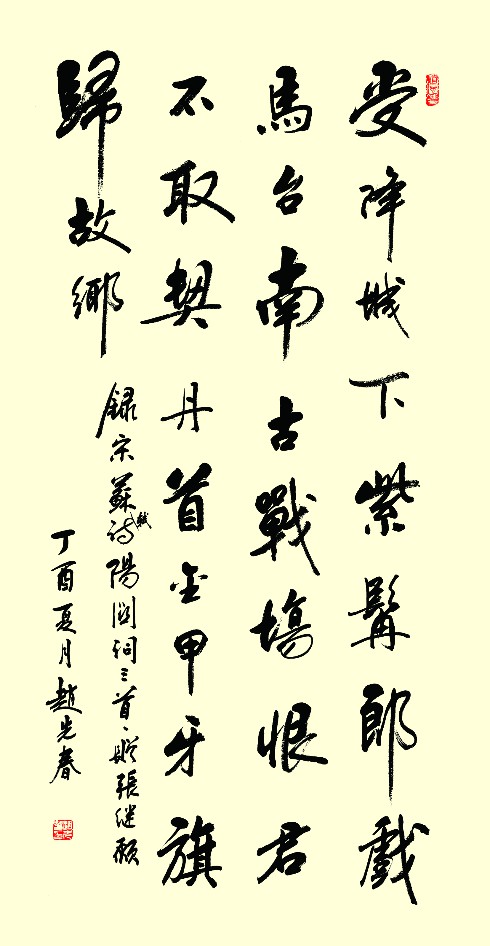 受降城下紫髯郎戲
馬台南古戰塲恨君
不取契丹首金甲牙旗
歸故鄉
録宋蘇軾詩陽関詞三首、贈張继愿
丁酉夏月趙先春